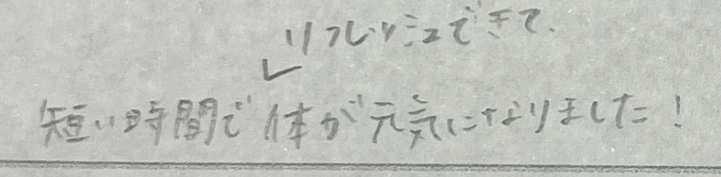 リフレッシュできて、
短い時間で体が元気になりました!